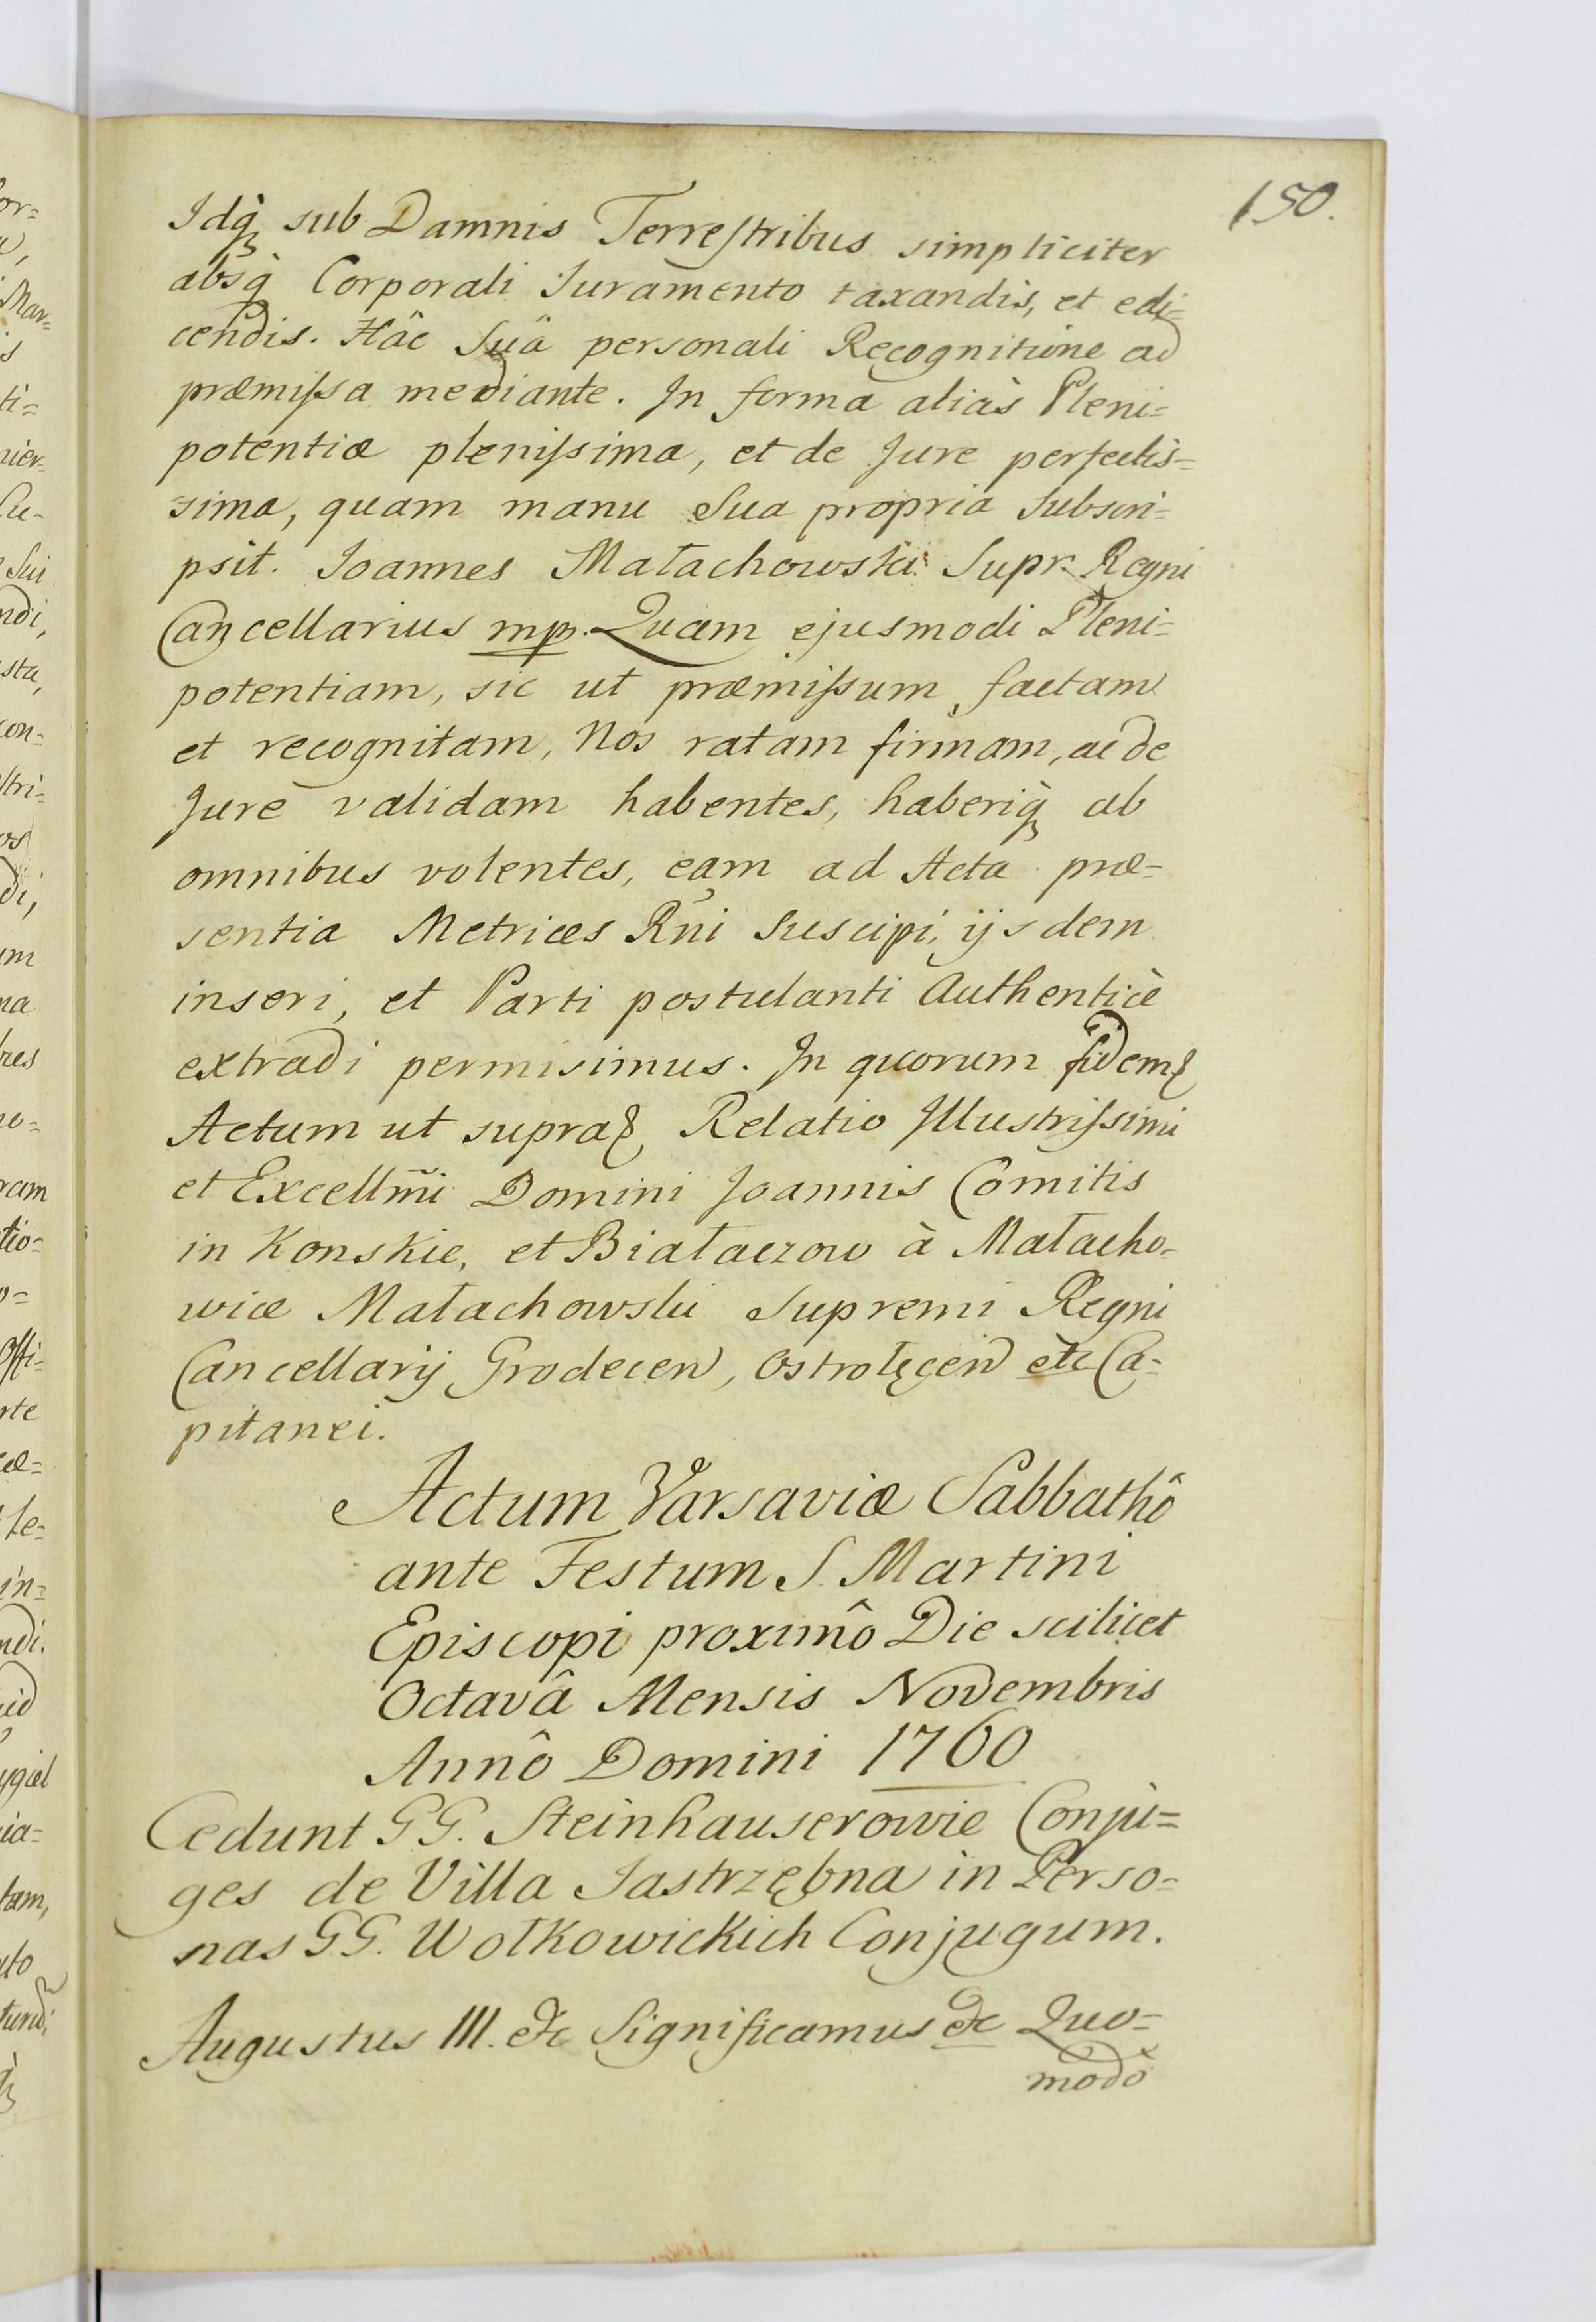 150.
Idq̀ sub Damnis Terrestribus simpliciter
absq̀ Corporali Juramento taxandis, et edi=
cendis. Hâc Suâ personali Recognitione ad
præmissa mediante. In forma aliàs Pleni=
potentiæ plenissima, et de Jure perfectis=
sima, quam manu Sua propria Subscri=
psit. Joannes Małachowski Supr. Regni
Cancellarius mp. Quam ejusmodi Pleni=
potentiam, sic ut præmissum factam
et recognitam, Nos ratam firmam, ac de
Jure validam habentes, haberiq̀ ab
omnibus volentes, eam ad Acta præ=
sentia Metrices Rñi Suscipi, ijsdem
inseri, et Parti postulanti Authenticè
extradi permisimus. In quorum fidem
Actum ut supra Relatio Illustrissimi
et Excellm̃i Domini Joannis Comitis
in Konskie, et Białaczow à Małacho=
wice Małachowski Supremi Regni
Cancellarij Grodecen, Ostrołęcen etc Ca=
pitanei.
Actum Varsaviæ Sabbathô
ante Festum S. Martini
Episcopi proximô Die scilicet
Octavâ Mensis Novembris
Annô Domini 1760
Cedunt GG. Steinhauserowie Conju=
ges de Villa Jastrzębna in Perso=
nas GG. Wołkowickich Conjugum.
Augustus III. &c Significamus &c Quo=
modo